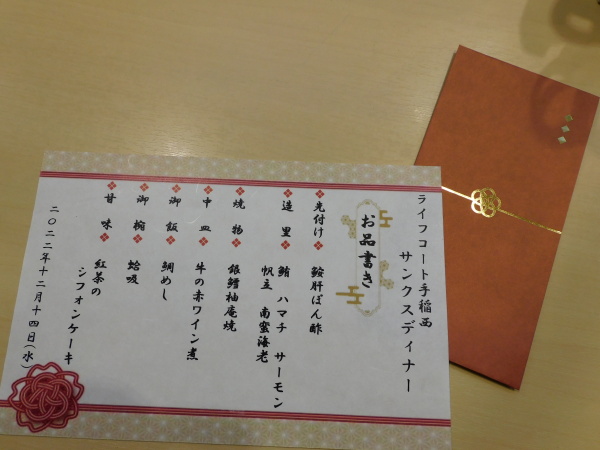 ライフコート手稲西
サンクスディナー
お品書き
先付け 鮟肝ぽん酢
造里 鮪 ハマチ サーモン
帆立 南蜜海老
焼物 銀鱈柚庵焼
中皿 牛の赤ワイン煮
御飯 鯛めし
御椀 蛤吸
甘味 紅茶の
シフォンケーキ
二〇二二年十二月十四日(水)